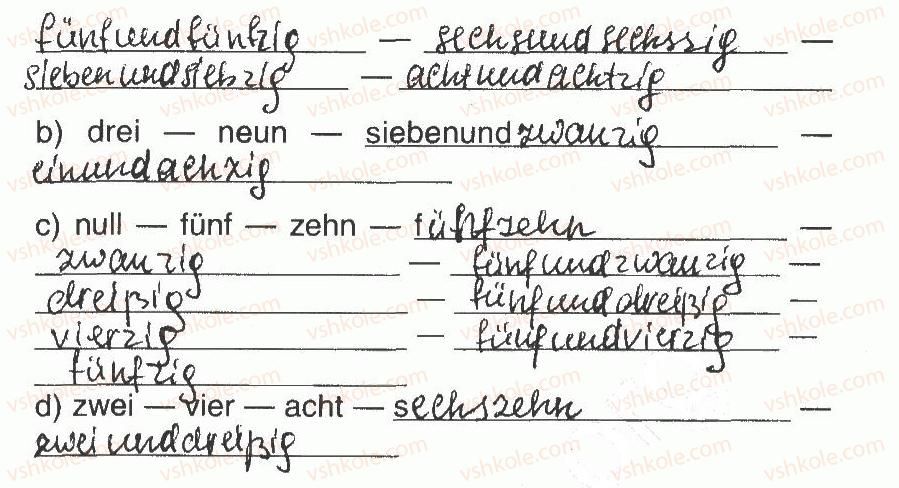 fünfundfünfzig — sechsundsechszig —
siebenundsiebzig — achtundachtzig
b) drei — neun — siebenundzwanzig —
einundachzig
c) null — fünf — zehn — fünfzehn —
zwanzig — fünfundzwanzig —
dreißig — fünfunddreißig —
vierzig — fünfundvierzig —
fünfzig
d) zwei — vier — acht — sechszehn —
zweiunddreißig